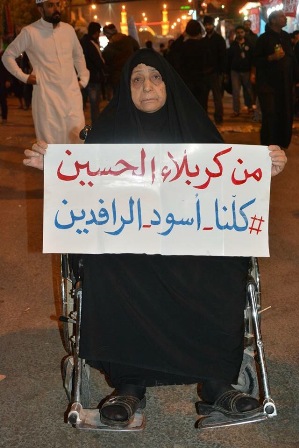 من كربلاء الحسين
#كلنا_أسود_الرافدين